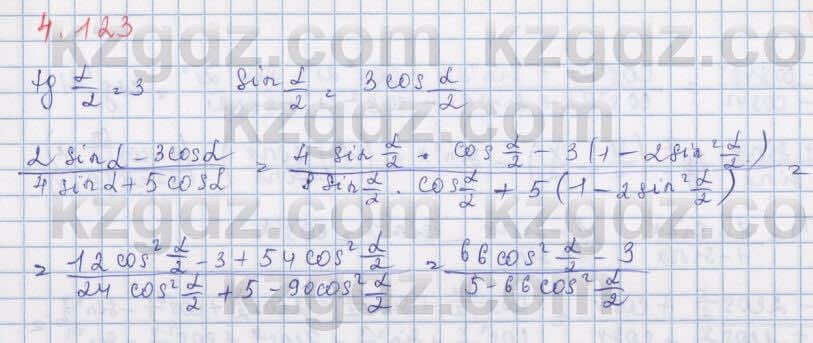 4.123
tg α/2 = 3   sin α/2 = 3 cos α/2
(2 sin α - 3 cos α)/(4 sin α + 5 cos α) = (4 sin α/2 · cos α/2 - 3(1 - 2 sin² α/2))/(8 sin α/2 · cos α/2 + 5(1 - 2 sin² α/2)) =
= (12 cos² α/2 - 3 + 54 cos² α/2)/(24 cos² α/2 + 5 - 90 cos² α/2) = (66 cos² α/2 - 3)/(5 - 66 cos² α/2)
kzgdz.com